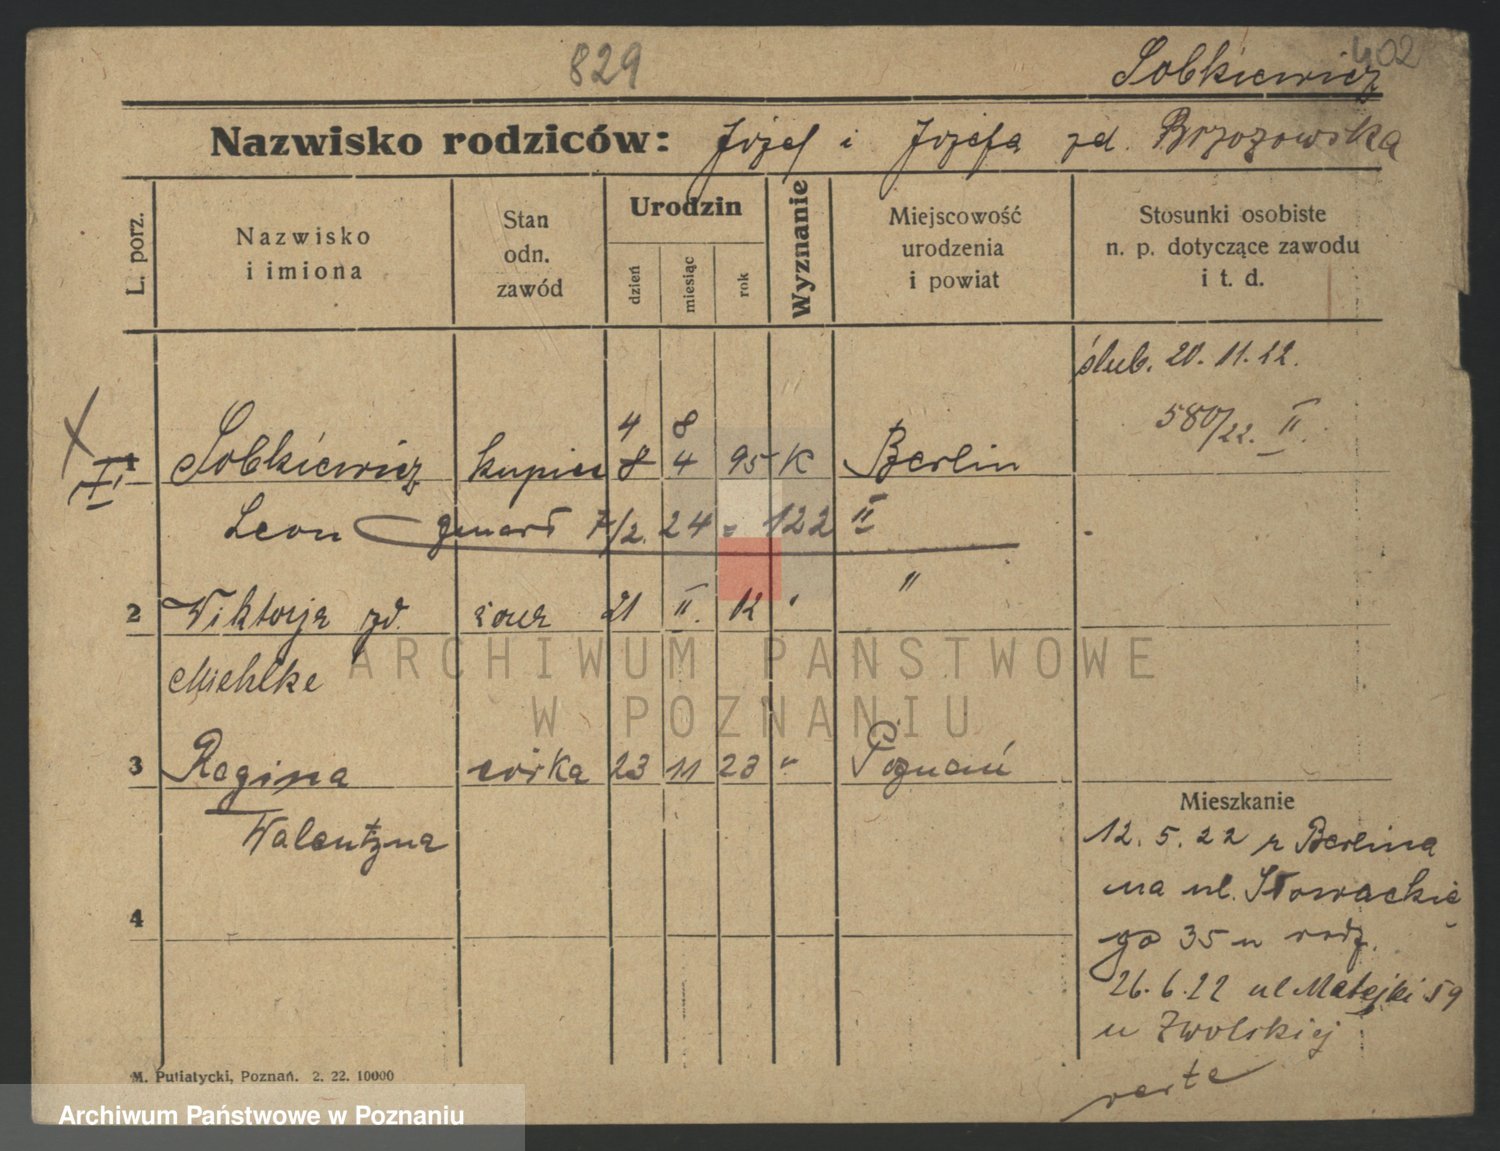 829
402
Sobkiewicz
Nazwisko rodziców: Józef i Józefa zd. Brzozowska
L. porz.
Nazwisko
i imiona
Stan
odn.
zawód
Urodzin
dzień
miesiąc
rok
Wyznanie
Miejscowość
urodzenia
i powiat
Stosunki osobiste
n. p. dotyczące zawodu
i t. d.
ślub. 20. 11. 22.
580/22. II.
4 8
1 Sobkiewicz kupiec 8 4 95 K Berlin
Leon zmarł 7/2. 24 = 122 II
2 Wiktorja zd. żona 21 II. 12 " "
Miehlke
3 Regina córka 23 11 23 " Poznań
Walentyna
4
Mieszkanie
12. 5. 22 z Berlina
na ul. Słowackie
go 35 u rodz.
26. 6. 22 ul Matejki 59
u Zwolskiej
verte
M. Putiatycki, Poznań. 2. 22. 10000
ARCHIWUM PAŃSTWOWE
W POZNANIU
Archiwum Państwowe w Poznaniu